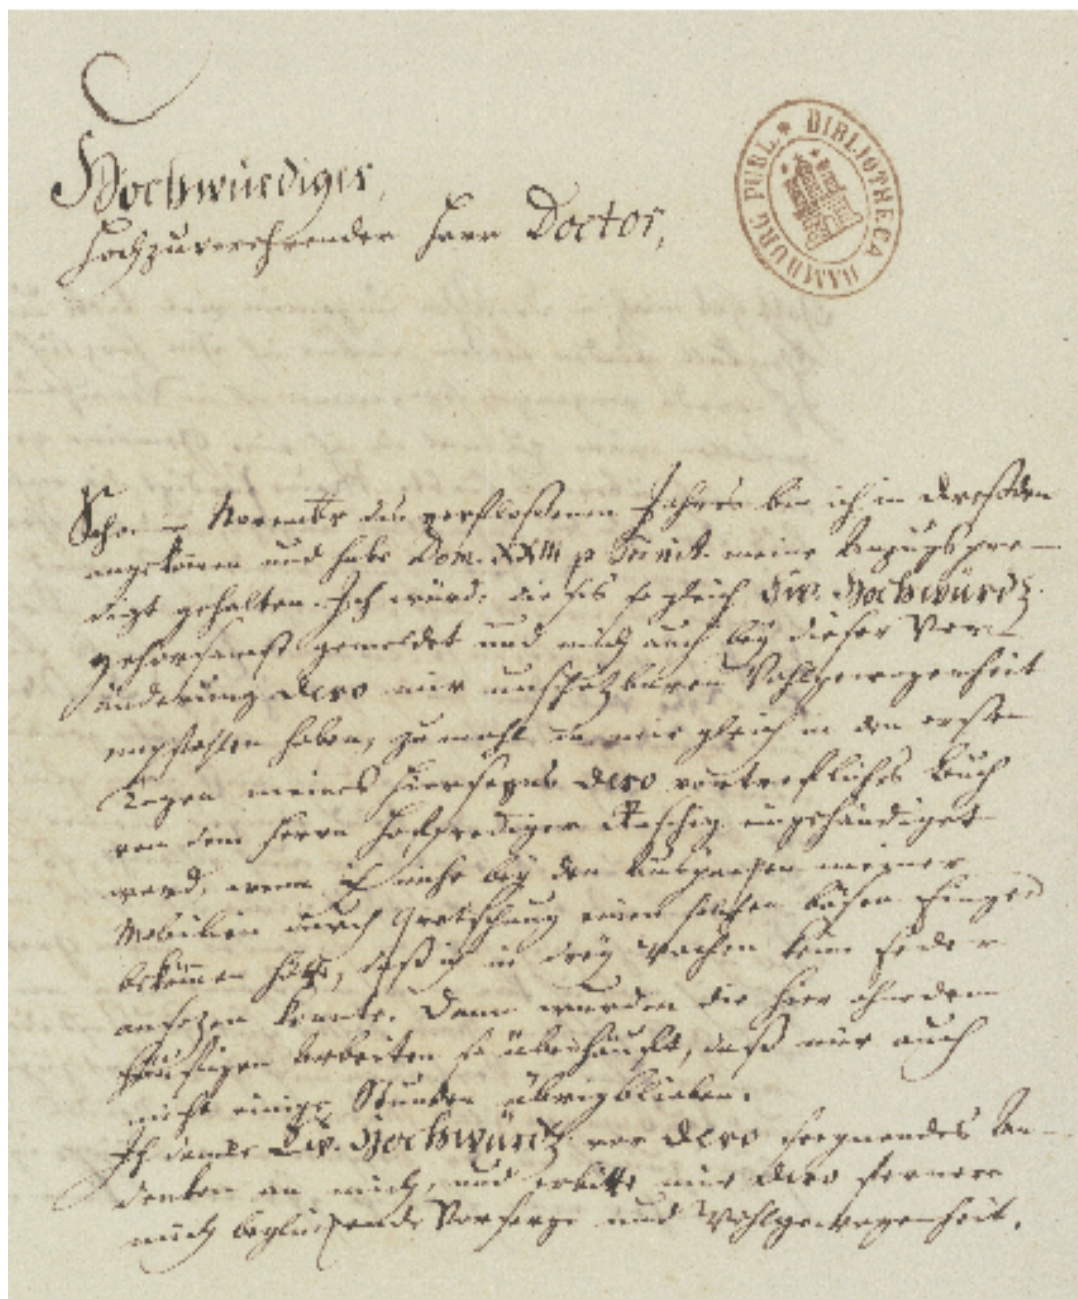 Hochwürdiger,
Hochzuverehrender Herr Doctor,
BIBLIOTHECA HAMBURG PUBL.
Schon im Novembr des verfloßenen Jahres bin ich in Dreßden
angekom̄en und habe Dom. XXIII p. Trinit. meine Anzugspre-
digt gehalten. Ich würde dieses sogleich Ew. Hochwürd.
gehorsamst gemeldet und mich auch bey dieser Ver-
änderung Dero mir unschätzbaren Wohlgewogenheit
empfohlen haben, zumahl da mir gleich in den ersten
Tagen meines Hierseyns Dero vortrefliches Buch
von dem Herrn Hofprediger Raschig eingehändiget
ward, wenn ich nicht bey dem Auspacken meiner
Mobilien durch Quetschung einen solchen bösen Finger
bekom̄en hätte, daß ich in drey Wochen keine Feder
ansezen konnte. Dann wurden die hier ohnedem
häufigen Arbeiten so überhäuft, daß mir auch
nicht einige Stunden übrigblieben.
Ich danke Ew. Hochwürd. vor Dero seegnendes An-
denken an mich, und erbitte mir Dero fernere
mich beglückende Vorsorge und Wohlgewogenheit.